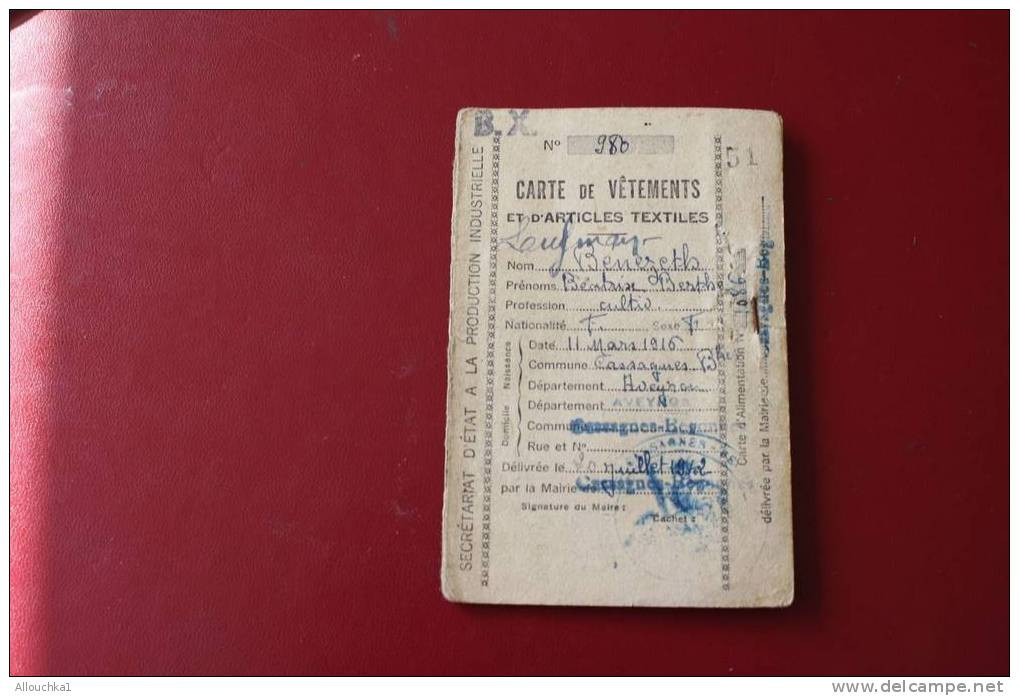 B. X.
N° 980
51
CARTE DE VÊTEMENTS
ET D'ARTICLES TEXTILES
Nom Benezeth
Prénoms Béatrix Berthe
Profession cultiv.
Nationalité F. Sexe F
Naissance
Date 11 Mars 1916
Commune Cassagnes
Département Aveyron
Domicile
Département AVEYRON
Commune Cassagnes-Begon
Rue et N°
Délivrée le 20 Juillet 1942
par la Mairie de Cassagnes-Beg
Signature du Maire :
Cachet :
SECRÉTARIAT D'ÉTAT A LA PRODUCTION INDUSTRIELLE
Carte d'Alimentation N° 1086
délivrée par la Mairie de Cassagnes-Begon
Allouchka1
www.delcampe.net